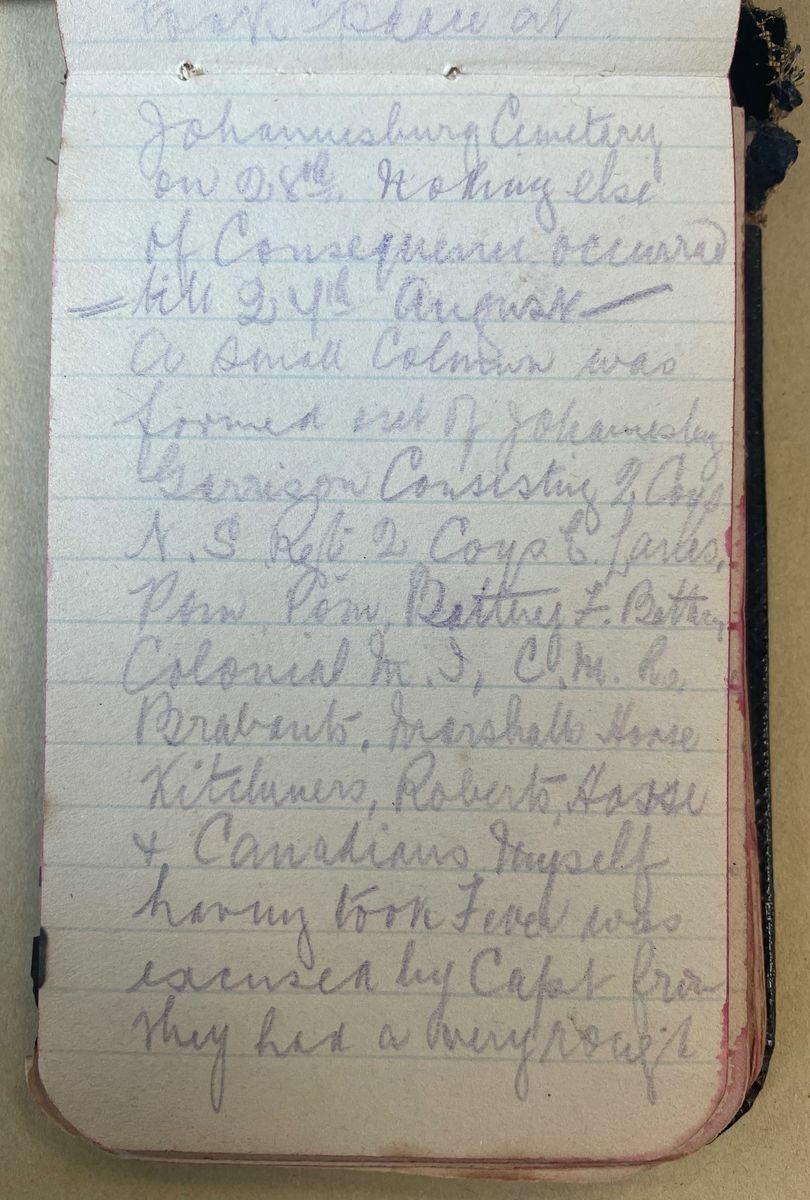 took place at
Johannesburg Cemetary
on 28th. Nothing else
of Consequence occurred
= till 24th August —
A small Column was
formed out of Johannesbg
Garrison Consisting 2 Coys
N. S Rgt 2 Coys E. Lancs,
Pom Pom, Battery F. Battery
Colonial M. I, C. M. Rs,
Brabants, Marshalls Horse
Kitcheners, Roberts, Horse
& Canadians Myself
having took Fever was
excused by Capt from
they had a very rought